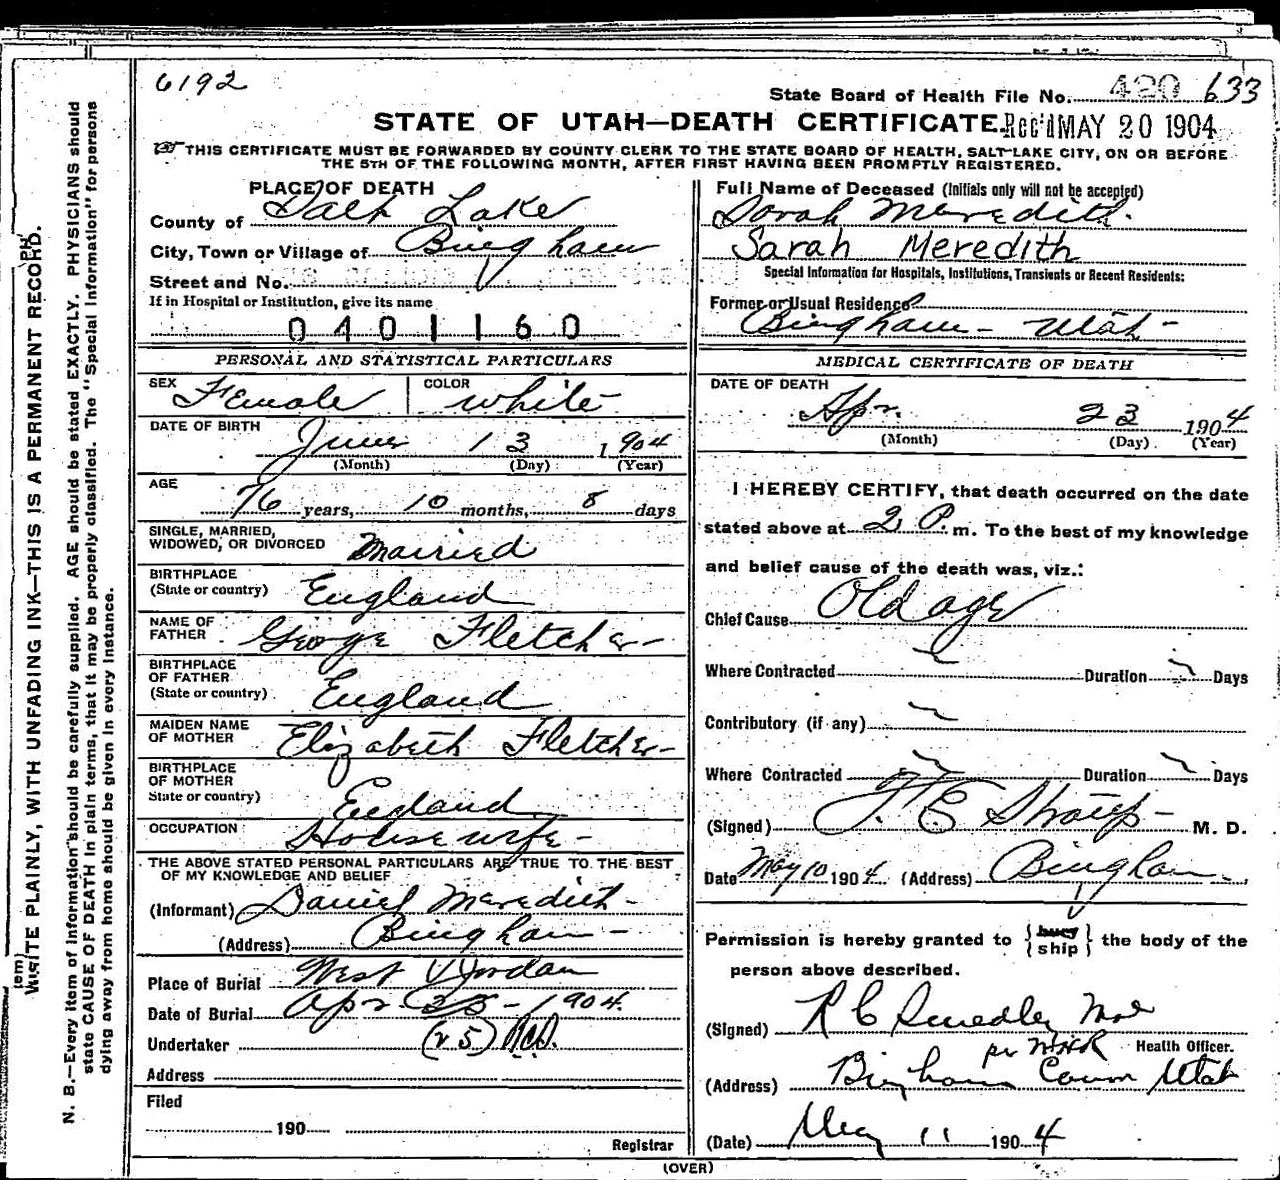 6192
State Board of Health File No. 420 633
STATE OF UTAH—DEATH CERTIFICATE. Rec'd MAY 20 1904
THIS CERTIFICATE MUST BE FORWARDED BY COUNTY CLERK TO THE STATE BOARD OF HEALTH, SALT LAKE CITY, ON OR BEFORE
THE 5TH OF THE FOLLOWING MONTH, AFTER FIRST HAVING BEEN PROMPTLY REGISTERED.
PLACE OF DEATH
County of Salt Lake
City, Town or Village of Bingham
Street and No.
If in Hospital or Institution, give its name
0401160
PERSONAL AND STATISTICAL PARTICULARS
SEX Female COLOR white
DATE OF BIRTH June 13 1904
(Month) (Day) (Year)
AGE
76 years, 10 months, 8 days
SINGLE, MARRIED,
WIDOWED, OR DIVORCED Married
BIRTHPLACE
(State or country) England
NAME OF
FATHER George Fletcher
BIRTHPLACE
OF FATHER
(State or country) England
MAIDEN NAME
OF MOTHER Elizabeth Fletcher
BIRTHPLACE
OF MOTHER
State or country) England
OCCUPATION Housewife
THE ABOVE STATED PERSONAL PARTICULARS ARE TRUE TO THE BEST
OF MY KNOWLEDGE AND BELIEF
(Informant) Daniel Meredith
(Address) Bingham
Place of Burial West Jordan
Date of Burial Apr 25 - 1904
Undertaker (25)
Address
Filed
190
Registrar
Full Name of Deceased (Initials only will not be accepted)
Sorah Meredith
Sarah Meredith
Special Information for Hospitals, Institutions, Transients or Recent Residents:
Former or Usual Residence
Bingham - Utah -
MEDICAL CERTIFICATE OF DEATH
DATE OF DEATH
Apr. 23 1904
(Month) (Day) (Year)
I HEREBY CERTIFY, that death occurred on the date
stated above at 2 P. m. To the best of my knowledge
and belief cause of the death was, viz.:
Chief Cause Old age
Where Contracted Duration Days
Contributory (if any)
Where Contracted Duration Days
(Signed) F. E. Straup M. D.
Date May 10 1904 (Address) Bingham
Permission is hereby granted to {bury
ship} the body of the
person above described.
(Signed) R C Smedley
Health Officer.
(Address) Bingham Utah
(Date) May 11 1904
(OVER)
WRITE PLAINLY, WITH UNFADING INK—THIS IS A PERMANENT RECORD.
N. B.—Every item of information should be carefully supplied. AGE should be stated EXACTLY. PHYSICIANS should
state CAUSE OF DEATH in plain terms, that it may be properly classified. The "Special Information" for persons
dying away from home should be given in every instance.